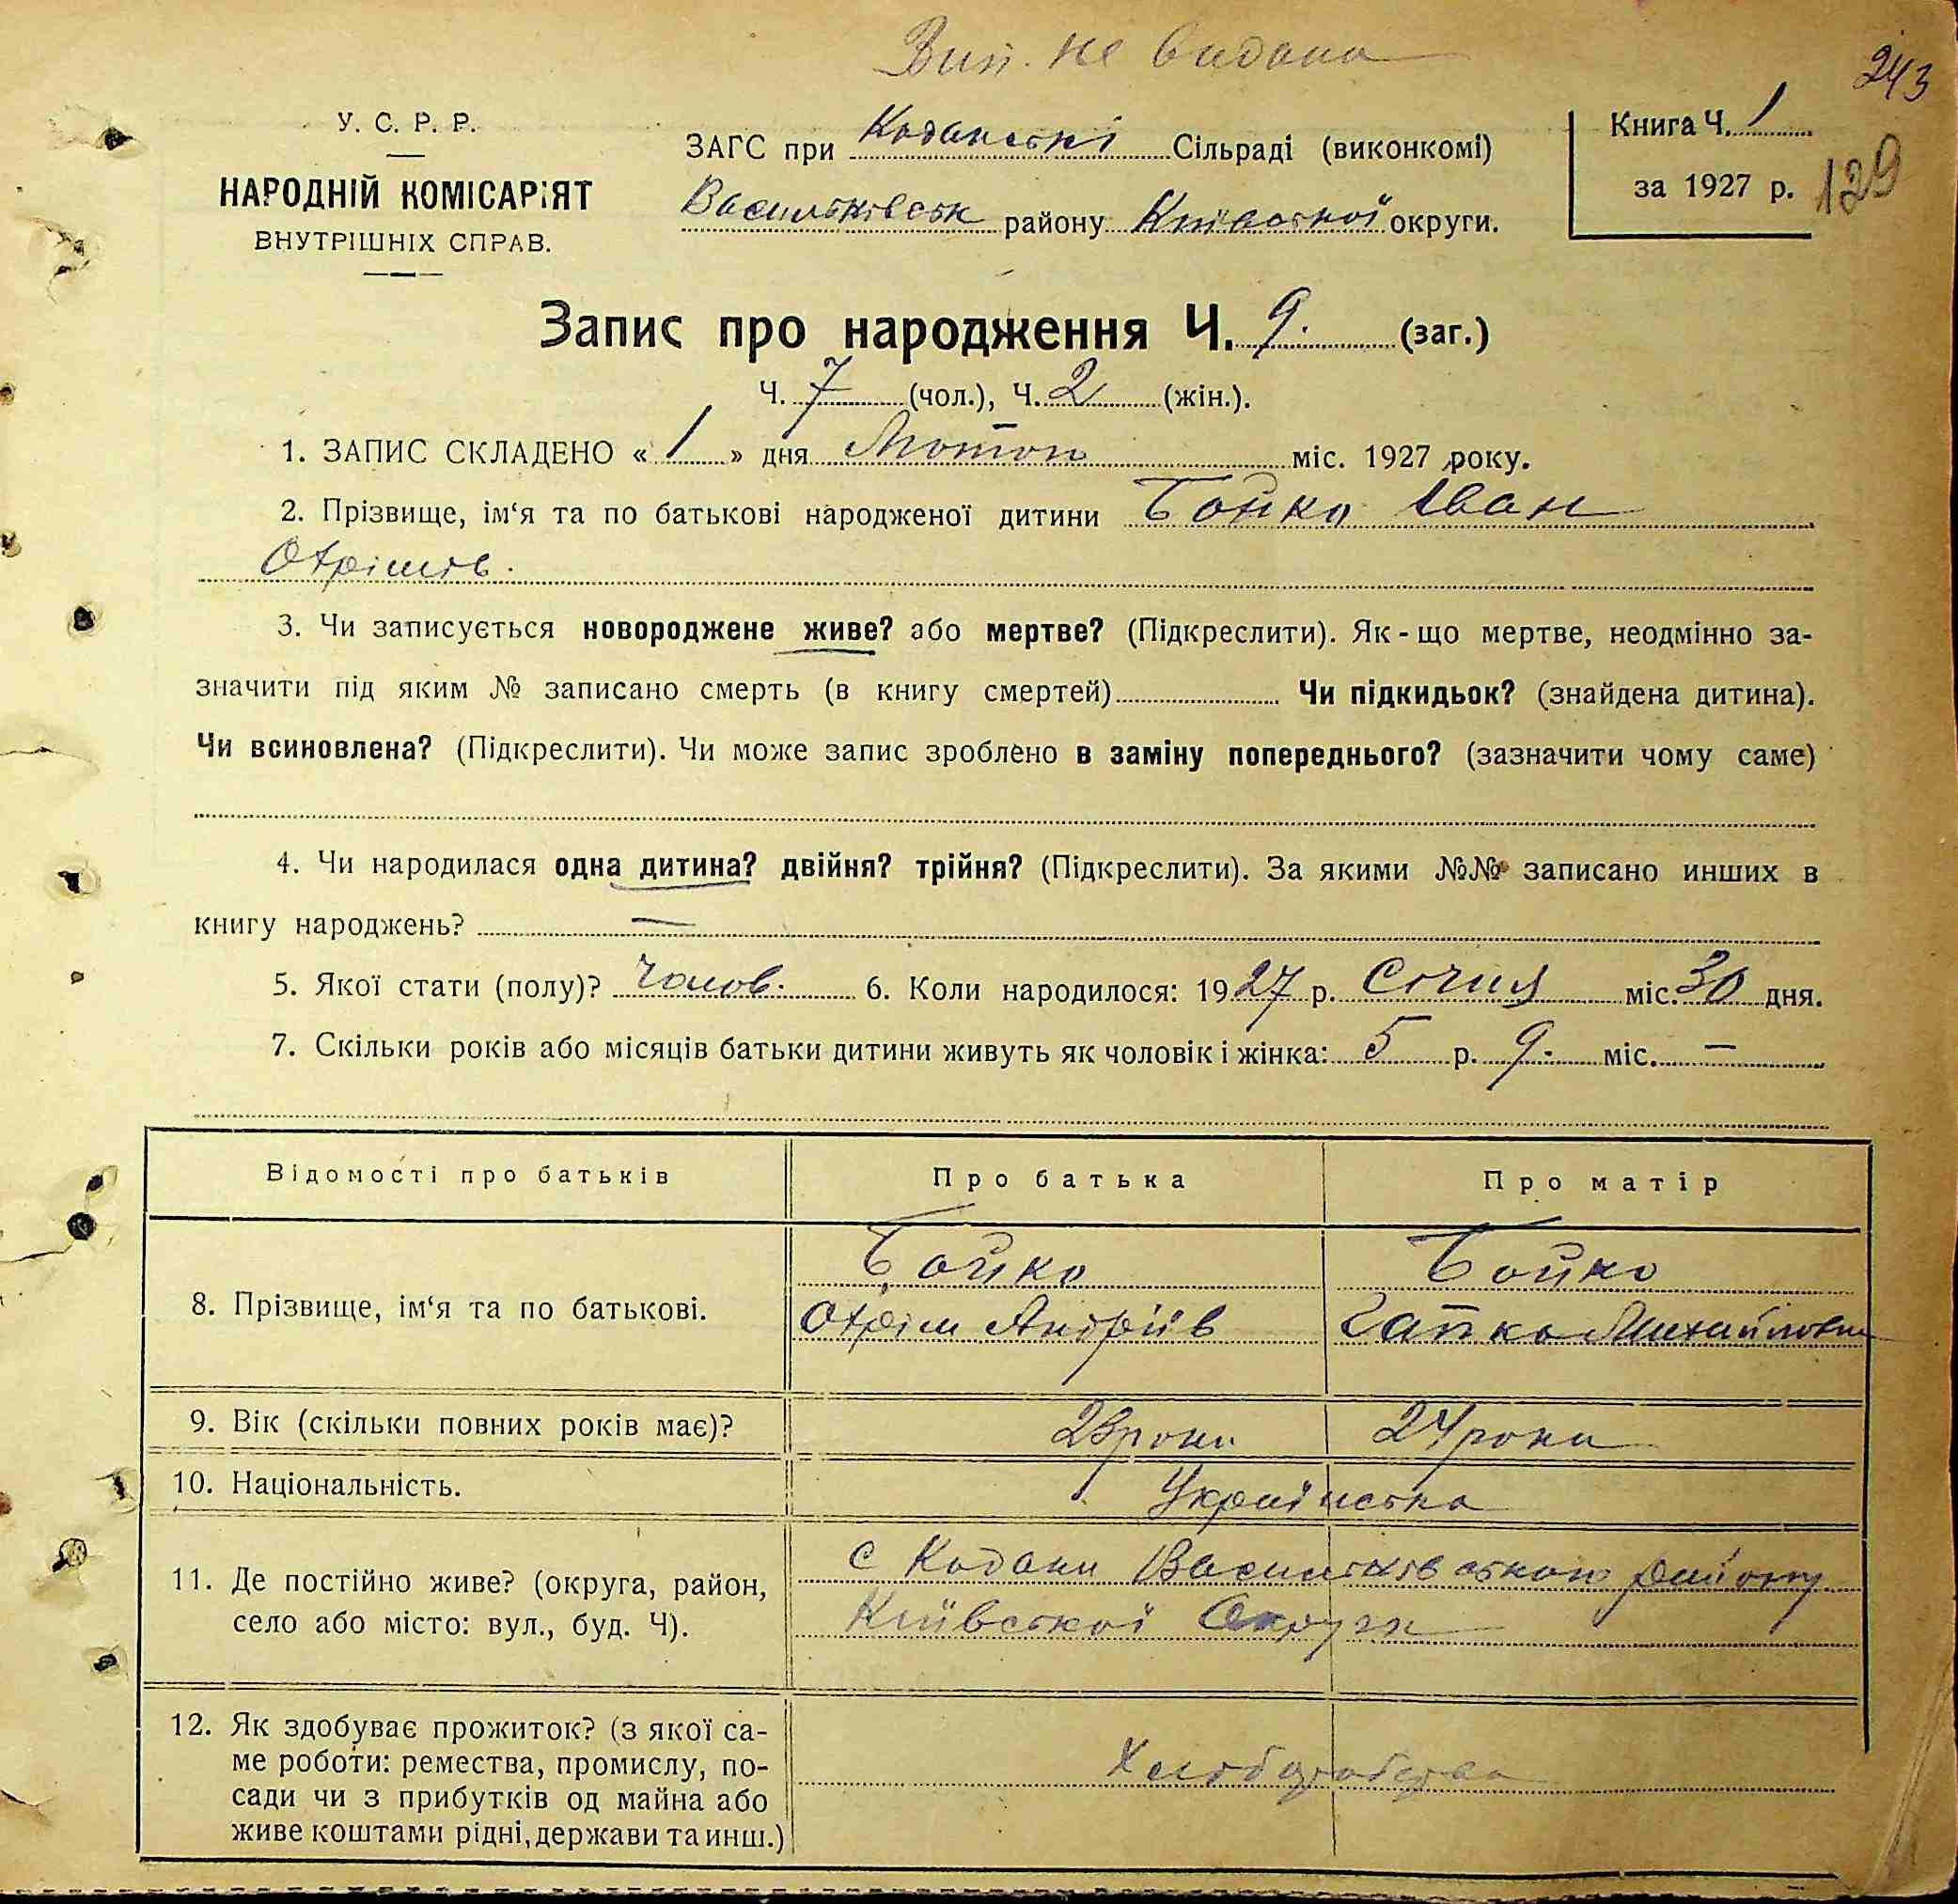 Вип. не видана
243
У. С. Р. Р.
НАРОДНІЙ КОМІСАРІЯТ
ВНУТРІШНІХ СПРАВ.
ЗАГС при Кодакській Сільраді (виконкомі)
Васильківськ району Київської округи.
Книга Ч. 1
за 1927 р.
129
Запис про народження Ч. 9. (заг.)
Ч. 7 (чол.), Ч. 2 (жін.).
1. ЗАПИС СКЛАДЕНО « 1 » дня Лютого міс. 1927 року.
2. Прізвище, ім‘я та по батькові народженої дитини Бойко Іван
Охрімів.
3. Чи записується новороджене живе? або мертве? (Підкреслити). Як-що мертве, неодмінно за-
значити під яким № записано смерть (в книгу смертей) Чи підкидьок? (знайдена дитина).
Чи всиновлена? (Підкреслити). Чи може запис зроблено в заміну попереднього? (зазначити чому саме)
4. Чи народилася одна дитина? двійня? трійня? (Підкреслити). За якими №№ записано инших в
книгу народжень? —
5. Якої стати (полу)? чолов. 6. Коли народилося: 1927 р. Січня міс. 30 дня.
7. Скільки років або місяців батьки дитини живуть як чоловік і жінка: 5 р. 9. міс. —
Відомості про батьків Про батька Про матір
8. Прізвище, ім‘я та по батькові. Бойко Бойко
Охрім Андріїв Гапка Михайловна
9. Вік (скільки повних років має)? 23 роки 24 роки
10. Національність. Українська
11. Де постійно живе? (округа, район, с Кодаки Васильківського району
село або місто: вул., буд. Ч). Київської Округи
12. Як здобуває прожиток? (з якої са-
ме роботи: ремества, промислу, по- Хліборобство
сади чи з прибутків од майна або
живе коштами рідні, держави та инш.)